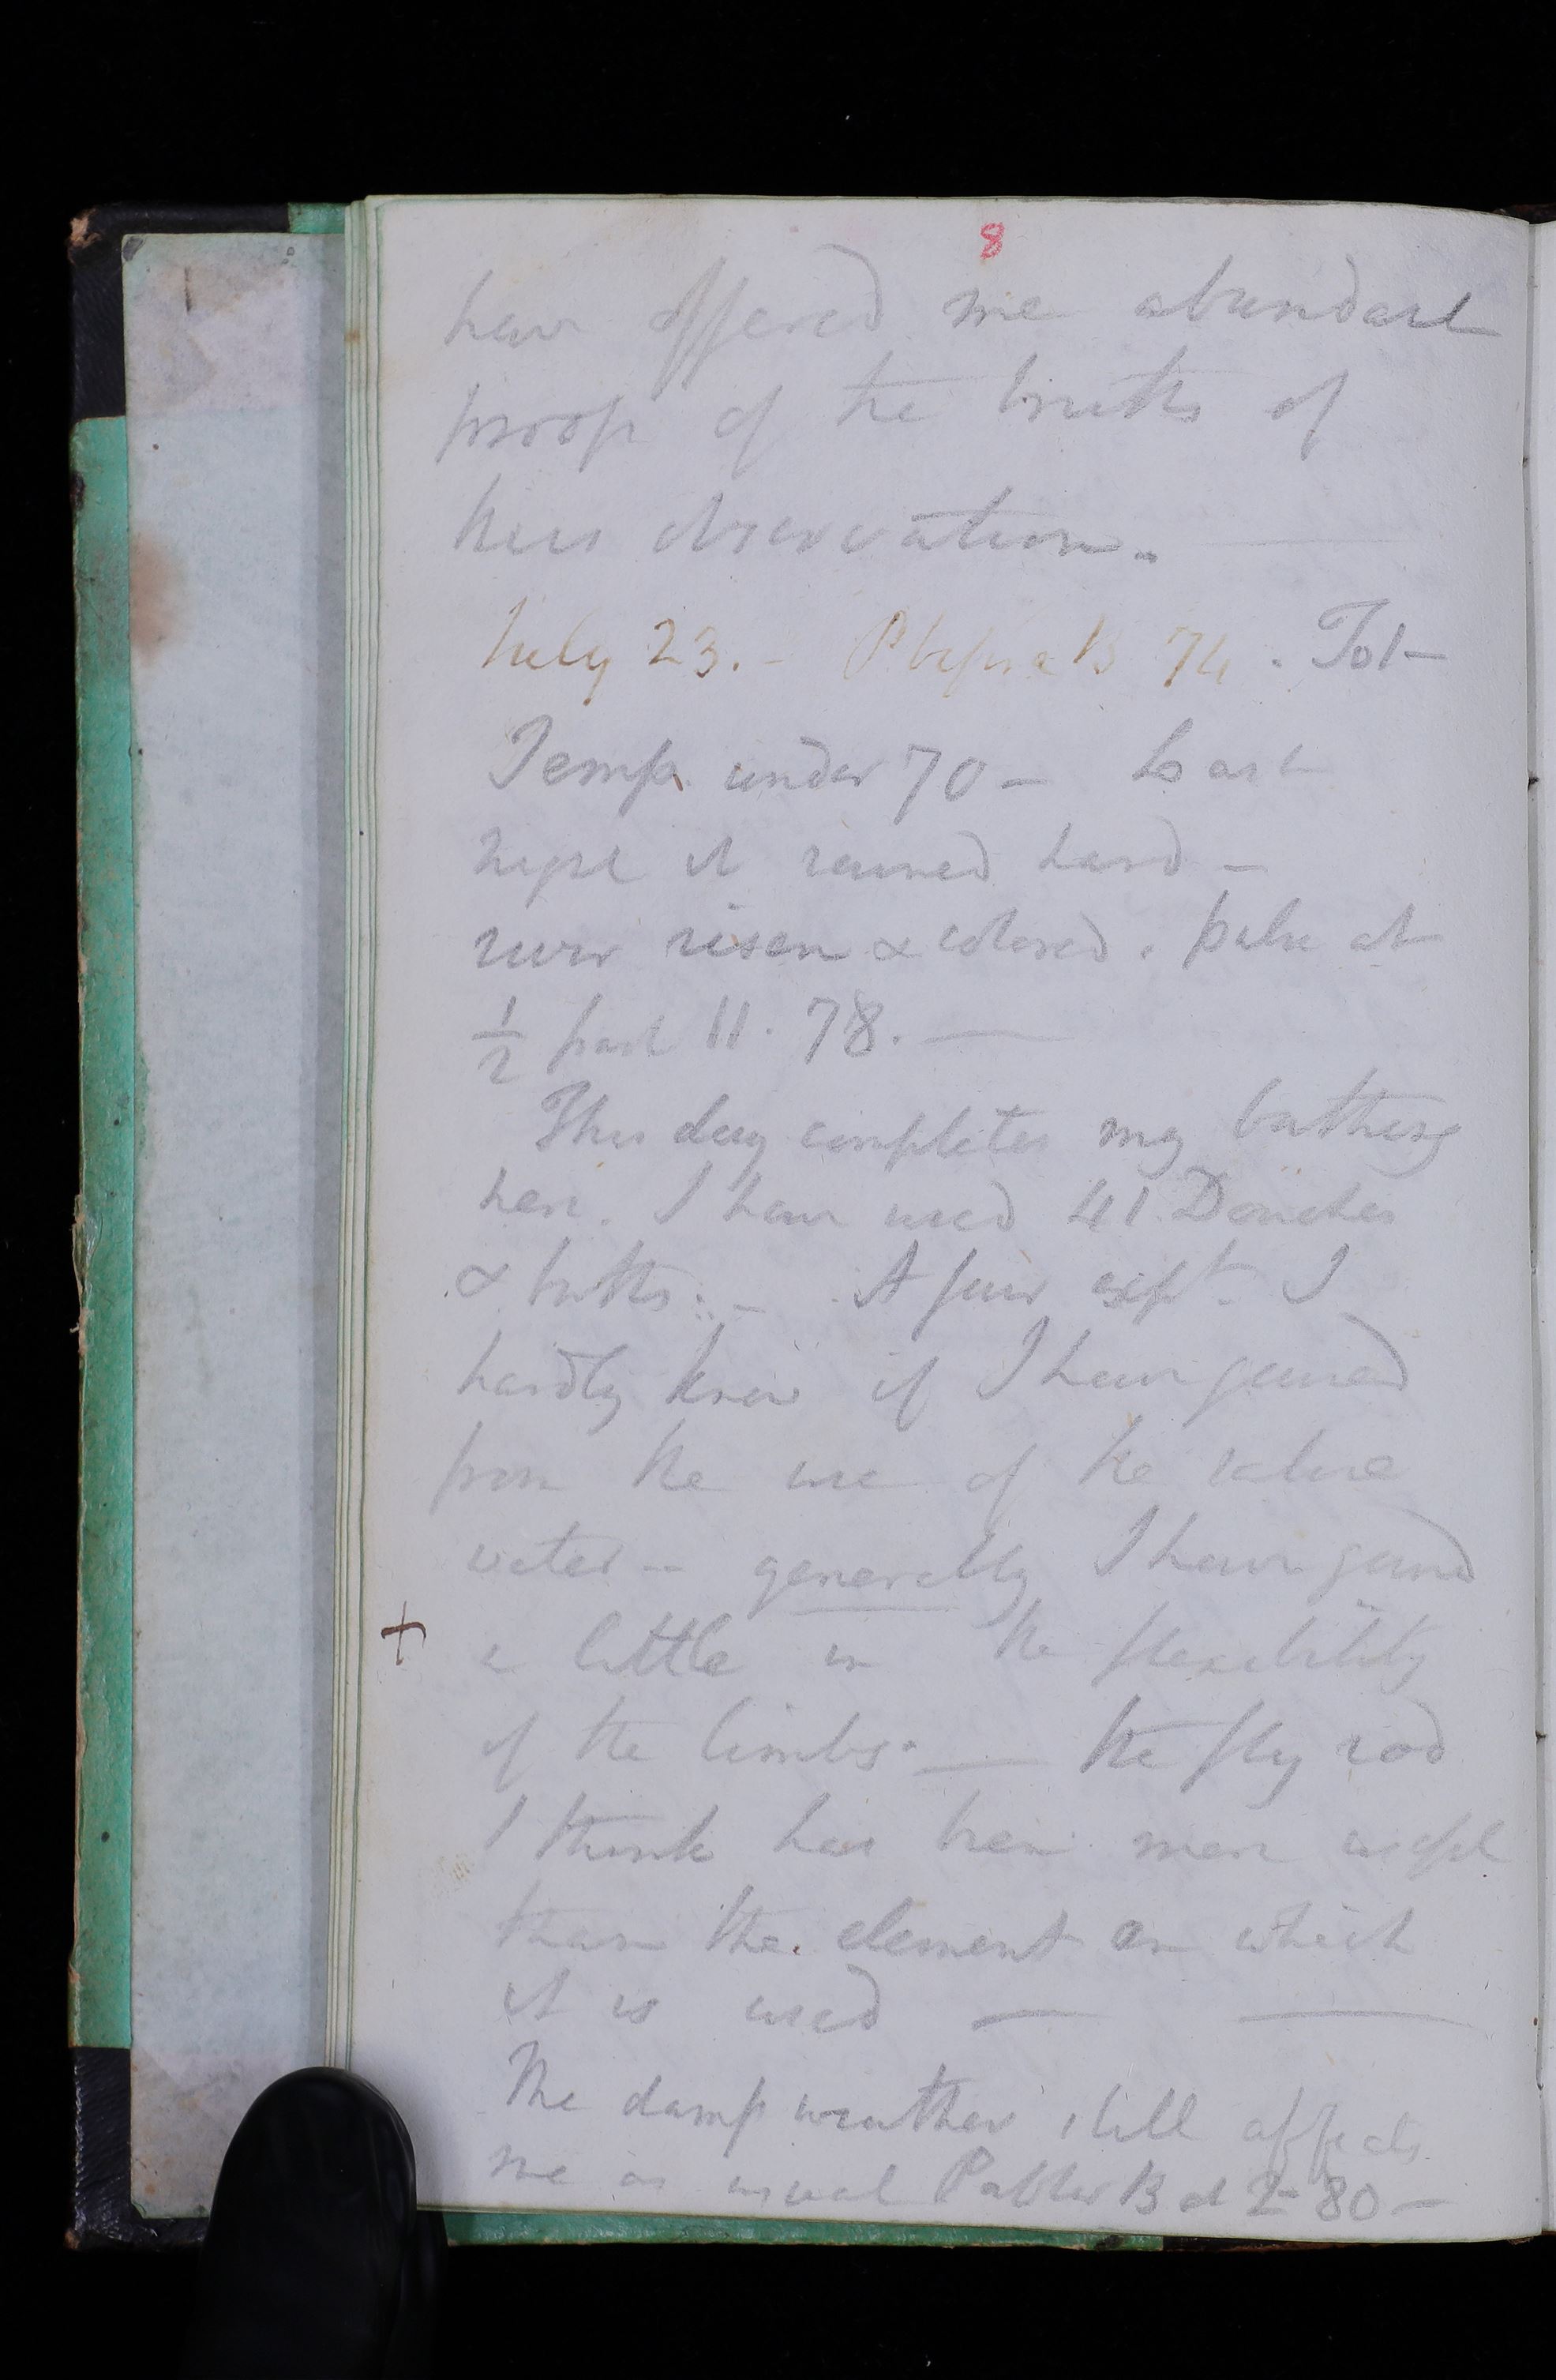 8
have offered me abundant
proofs of the truth of
this observation.
July 23. - P before B 74. Tol-
Temp. under 70 - Last
night it rained hard -
river risen & colored. pulse at
1/2 past 11. 78. —
This day completes my bathing
here. I have used 41 Douches
& baths. - A few exept. I
hardly know if I have gained
from the use of the saline
water - generally I have gained
+ a little in the flexibility
of the limbs. — the fly rod
I think has been more useful
than the element on which
it is used — —
The damp weather still affects
me as usual P after B at 2 - 80 -